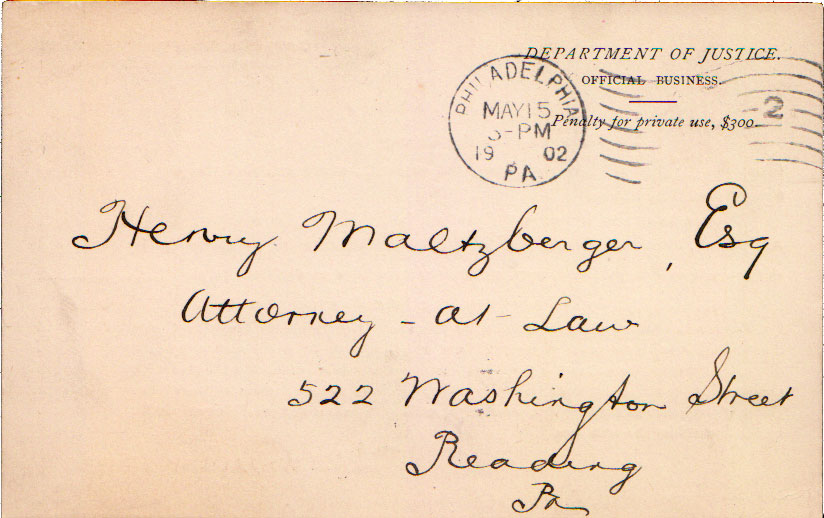 DEPARTMENT OF JUSTICE.
OFFICIAL BUSINESS.
Penalty for private use, $300.
PHILADELPHIA
MAY 15
-PM
19 02
PA
2
Henry Maltzberger, Esq
Attorney-at-Law
522 Washington Street
Reading
Pa